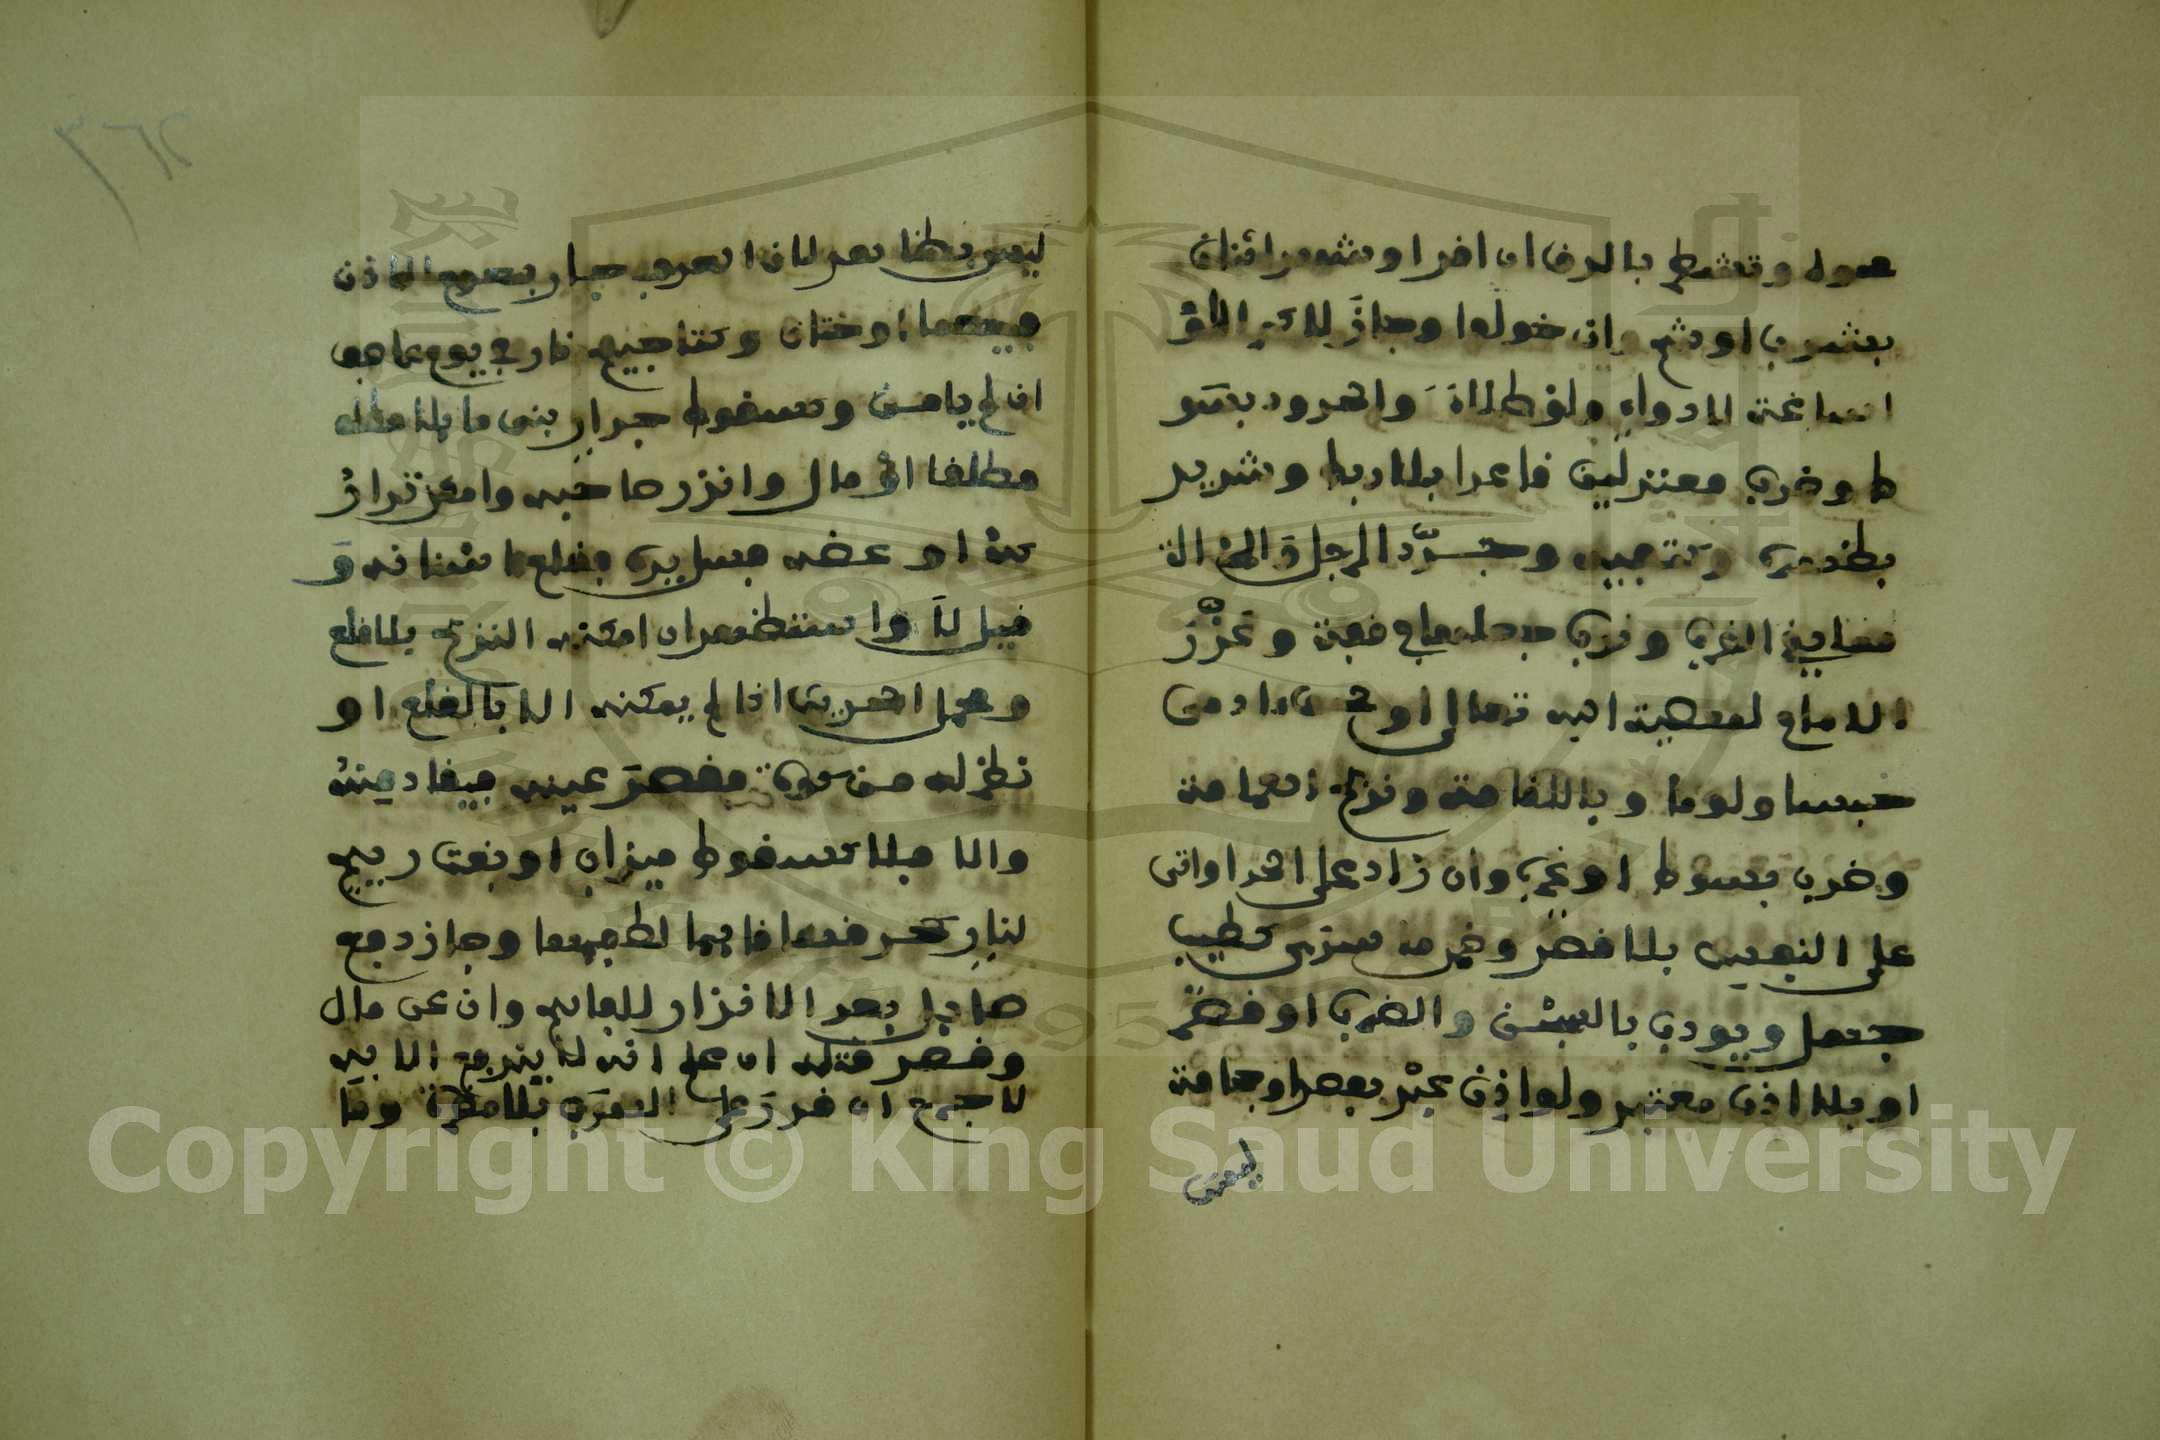 صوله وتشطر بالرق ان اقر او شهد اثنان
بشرب او شم وان خولفا وجاز لاكراه لا
اساغة لا دواء ولو طلاء والحدود بسو
ط وضرب معتدلين قاعدا بلا ربط وشد يد
بظهره وكتفيه وجرد الرجل والمراة
مما يقي الضرب وندب جعلها في قفة وعزر
الامام لمعصية الله تعالى او حق ادمي
حبسا ولوما وبالاقامة ونزع العمامة
وضرب بسوط او غيره وان زاد على الحد او اتى
على النفس بلا قصد وضمن سرى كطبيب
جهل ويودب بالحبس والضرب او قصر
او بلا اذن معتبر ولو اذن عبد بفصد او حجامة
ليس
ليس لان العرف جار بعدم الاذن
فيهما او ختان وكتاجيج نار في يوم عاصف
ان لم يامن وسقوط جدار بني مائلا
مطلقا او مال وانذر صاحبه وامكن تدار
كه او عضه فسل يده فقلع اسنانه و
قيل لا واستظهر ان امكنه النزع بلا قلع
وحمل الحديث اذا لم يمكنه الا بالقلع او
نظر له من كوة فقصد عينه فيقاد منه
والا فلا كسقوط ميزاب او بغت ريح
لنار كحرقها قائما لطفيها وجاز دفع
صايل بعد الانذار للفاهم وان عن مال
وقصد قتله ان علم انه لا يندفع الا به
لا جرح ان قدر على الهرب بلا مضرة وما
٣٦٢
Copyright © King Saud University